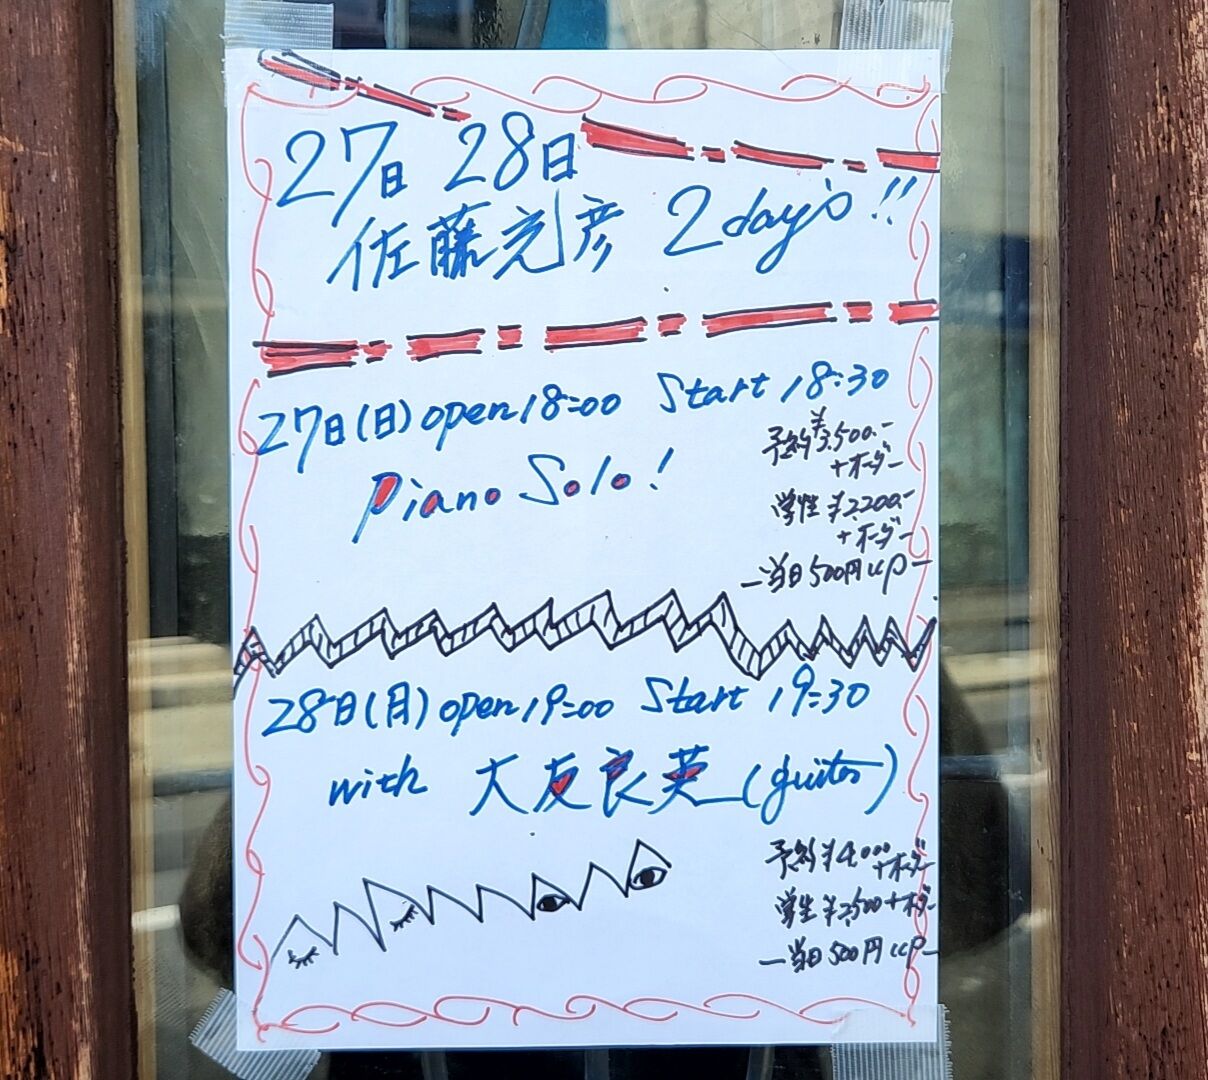 27日 28日
佐藤允彦 2day's!!
27日(日) open 18:00 Start 18:30
Piano Solo!
予約¥3,500.-
+オーダー
学性¥2,200.-
+オーダー
ー当日500円UPー
28日(月) open 19:00 Start 19:30
with 大友良英(guiter)
予約¥4,000
+オーダー
学生¥2,500+オーダー
ー当日500円UPー